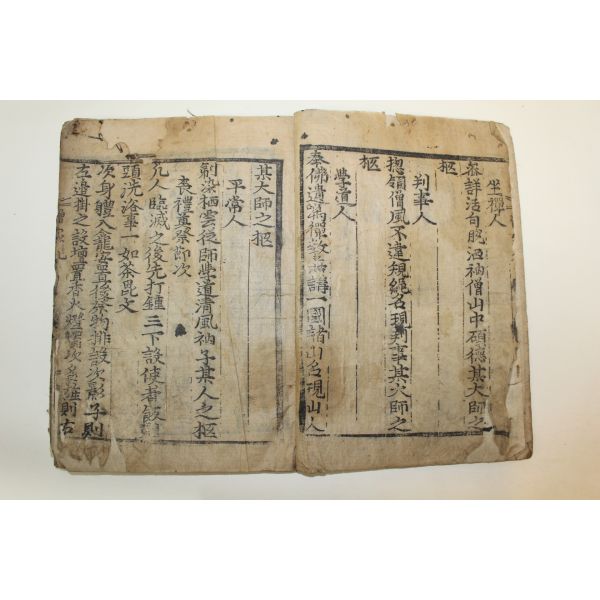 坐禪人
叅詳活句脫洒衲僧山中碩德某大師之
柩
判事人
摠領僧風不違規繩名現判事某大師之
柩
學道人
奉佛遺 禪敎 講一國諸山名現山人
某大師之柩
平常人
剃染栖雲從師學道淸風衲子某人之柩
喪禮董祭節次
凡人臨滅之後先打鍾三下設使者飯
頭洗浴事一如茶毘文
次身軆入龕安置後祭物排設次影子則
右邊掛之設壇置香火燈燭次 則右